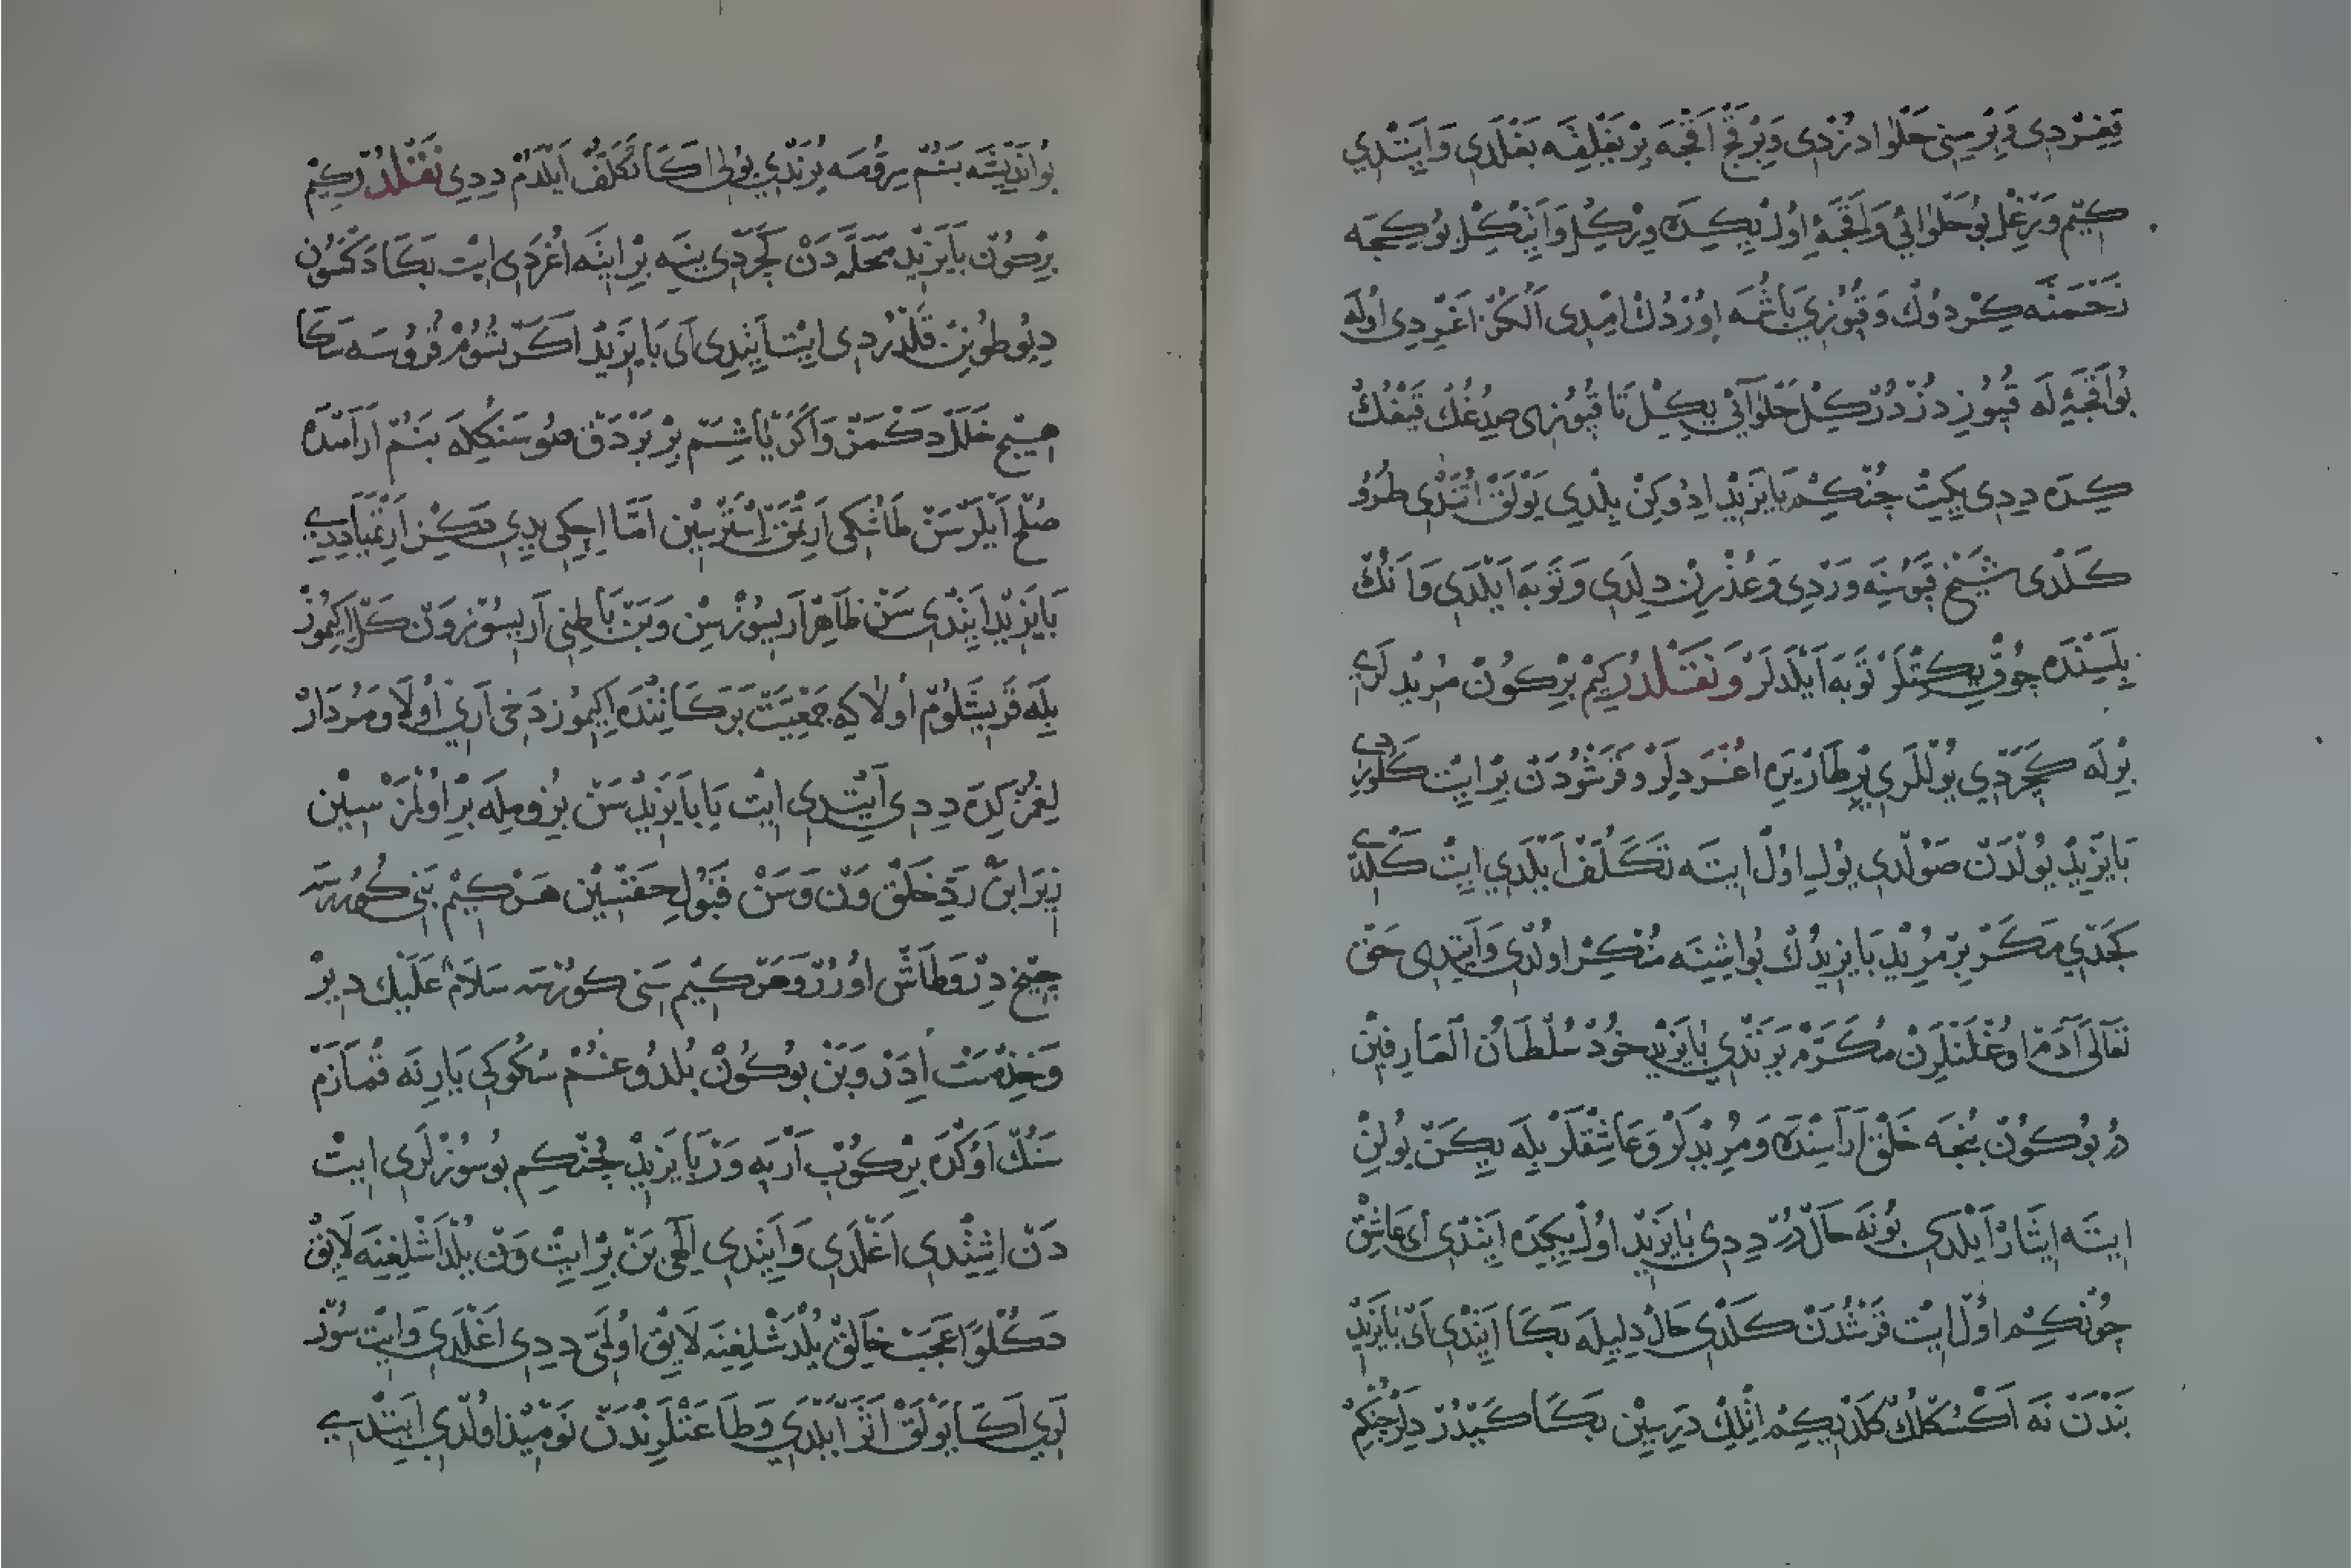 قغردی و بریسنی حلوا دزدی و برقچ اقچه بر بغلغه بغلدی و ایتدی
كیم ورغل بو حلوائی و اقچه اول یكده ویركل و ایتكل بو كجه
زحمته كردوك و قبوزی باشمه اوردك امدی الكز اغردی اوله
بو اقچه له قبوز دزدركل حلوائی یكل تا قبوزی صدغك قیغك
كده ددی یكیت چنكم بایزید ادوكن بلدی یولق اتدی طرو
كلدی شیخ قپوسنه وردی و عذرین دیلدی و توبه ایلدی و انك
بلسنده چوق یكتلر توبه ایلدلر و نقلدر كیم بركون مریدلری
بوله كچردی یوللری بر طار یره اغردلر و قرشودن بر ایت كلوردی
بایزید یولدن صولدی یولی اول ایته تكلف ایلدی ایت كلدی
كچدی مكر بر مرید بایزیدك بو اشنه منكر اولدی و ایتدی حق
تعالی آدم اوغلنلرن مكرم یرتدی بایزید خود سلطان العارفین
در بوكون بنجه خلق اراسنده و مریدلر و عاشقلر بیله یكن یولن
ایته ایثار ایلدی بو نه حالدر ددی بایزید اول یكده ایتدی ای عاشق
چونكم اول ایت قرشدن كلدی حال دلیله بكا ایتدی ای بایزید
بندن نه اكسكلك كلدیكم اتلك دریسین بكا كیدردیلر چنكم
بو اندیشه بنم سرومه یرندی یولی اكا تكلف ایلدم ددی نقلدر كیم
بركون بایزید محله دن كچردی ینه بر ایته اغردی ایت بكا دكنسون
دیو طونن قلدردی ایت ایتدی ای بایزید اكر بنوم قروسه سكا
هیچ خلل دكمز و اكر یاشسم بر بردق صو سنكله بنم ارامده
صلح ایلر سن طاشكی ارتمق استرسین اما اچكی یدی دكز ارتمیا ددی
بایزید ایتدی سن ظاهر اریسوزسن و بن باطنی اریسوز ون كل ایكیموز
بله قریشلوم اولا كه جمعیت بركاتنده ایكیموز دخی اری اولاو مردار
لغمز كده ددی ایتدی ایت یا بایزید سن بزومله بر اولمزسین
زیرا بن رد خلق ون و سن قبول حقسین هركیم بنی كورسه
چخ در و طاش اورر و هركیم سنی كورسه سلام علیك دیر
و خذمت ادر و بن بوكون بلدوغم سكوكی یارنه قمازم
سنك اوكده بر كوب اربه ور بایزید چنكم بو سوزلری ایت
دن اشتدی اغلدی و ایتدی الهی بن بر ایت ون یلداشلغنه لایق
دكلوا عجب خالق یلدشلغنه لایق اولمی ددی اغلدی و ایت سوز
لری اكا یولق اثر ایلدی و طاعتلرندن نومیذ اولدی ایتدی